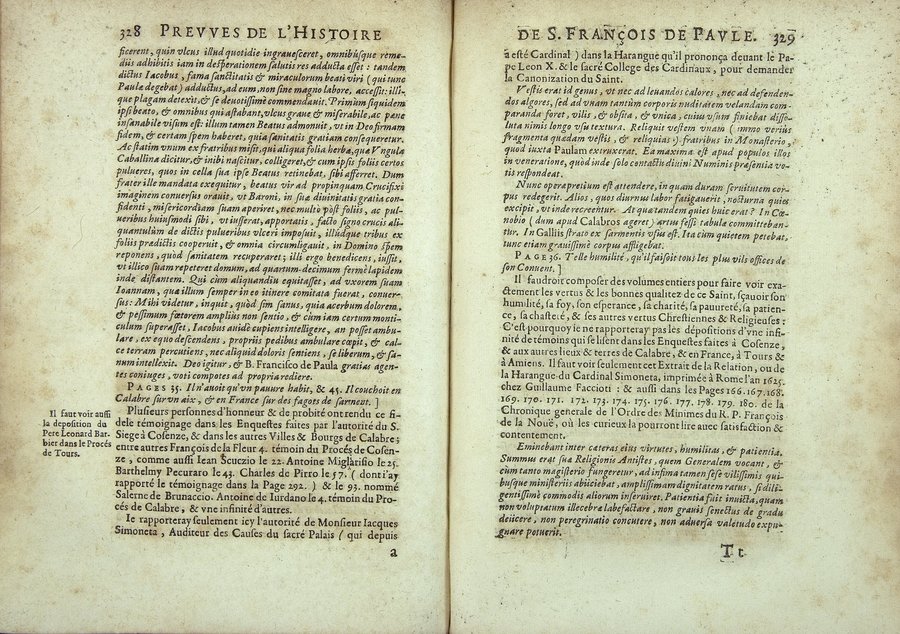 328 PREVVES DE L'HISTOIRE
ficerent, quin vlcus illud quotidie ingrauesceret, omnibúsque reme-
diis adhibitis iam in desperationem salutis res adducta esset: tandem
dictus Iacobus, fama sanctitatis & miraculorum beati viri (qui tunc
Paulæ degebat) adductus, ad eum, non sine magno labore, accessit: illi-
que plagam detexit, & se deuotissimè commendauit. Primùm siquidem
ipsi beato, & omnibus qui astabant, vlcus graue & miserabile, ac pane
insanabile visum est: illum tamen Beatus admonuit, vt in Deo firmam
fidem, & certam spem haberet, quia sanitatis gratiam consequeretur.
Ac statim vnum ex fratribus misit, qui aliqua folia herbæ, quæ Vngula
Caballina dicitur, & inibi nascitur, colligeret, & cum ipsis foliis certos
pulueres, quos in cella sua ipse Beatus retinebat, sibi afferret. Dum
frater ille mandata exequitur, beatus vir ad propinquam Crucifixi
imaginem conuersus orauit, vt Baroni, in sua diuinitatis gratia con-
fidenti, misericordiam suam aperiret, nec multò pòst foliis, ac pul-
ueribus huiusmodi sibi, vt iusserat, apportatis, facto signo crucis ali-
quantulùm de dictis pulueribus vlceri imposuit, illúdque tribus ex
foliis prædictis cooperuit, & omnia circumligauit, in Domino spem
reponens, quòd sanitatem recuperaret; illi ergo benedicens, iussit,
vt illico suam repeteret domum, ad quartum-decimum fermè lapidem
inde distantem. Qui cùm aliquandiu equitasset, ad vxorem suam
Ioannam, quæ illum semper in eo itinere comitata fuerat, conuer-
sus: Mihi videtur, inquit, quòd sim sanus, quia acerbum dolorem,
& pessimum fœtorem ampliùs non sentio, & cùm iam certum monti-
culum superasset, Iacobus auidè cupiens intelligere, an posset ambu-
lare, ex equo descendens, propriis pedibus ambulare cœpit, & cal-
ce terram percutiens, nec aliquid doloris sentiens, se liberum, & sa-
num intellexit. Deo igitur, & B. Francisco de Paula gratias agen-
tes coniuges, voti compotes ad propria rediere.
PAGES 35. Il n'auoit qu'vn pauure habit, & 45. Il couchoit en
Calabre sur vn aix, & en France sur des fagots de sarment. ]
Il faut voir aussi
la deposition du
Pere Leonard Bar-
bier dans le Procés
de Tours.
Plusieurs personnes d'honneur & de probité ont rendu ce fi-
dele témoignage dans les Enquestes faites par l'autorité du S.
Siege à Cosenze, & dans les autres Villes & Bourgs de Calabre;
entre autres François de la Fleur 4. témoin du Procés de Cosen-
ze, comme aussi Iean Scuczio le 22. Antoine Migliarisio le 25.
Barthelmy Pecuraro le 43. Charles de Pirro le 57. ( dont i'ay
rapporté le témoignage dans la Page 292. ) & le 93. nommé
Salerne de Brunaccio. Antoine de Iurdano le 4. témoin du Pro-
cés de Calabre, & vne infinité d'autres.
Ie rapporteray seulement icy l'autorité de Monsieur Iacques
Simoneta, Auditeur des Causes du sacré Palais ( qui depuis
a
DE S. FRANÇOIS DE PAVLE. 329
a esté Cardinal ) dans la Harangue qu'il prononça deuant le Pa-
pe Leon X. & le sacré College des Cardinaux, pour demander
la Canonization du Saint.
Vestis erat id genus, vt nec ad leuandos calores, nec ad defenden-
dos algores, sed ad vnam tantùm corporis nuditatem velandam com-
paranda foret, vilis, & obsita, & vnica, cuius vsum finiebat disso-
luta nimis longo vsu textura. Reliqui vestem vnam ( immo veriùs
fragmenta quædam vestis, & reliquias ) fratribus in Monasterio,
quod iuxta Paulam extruxerat. Ea maxima est apud populos illos
in veneratione, quòd inde solo contactu diuini Numinis præsentia vo-
tis respondeat.
Nunc operæpretium est attendere, in quam duram seruitutem cor-
pus redegerit. Alios, quos diurnus labor fatigauerit, nocturna quies
excipit, vt inde recreentur. At quæ tandem quies huic erat? In Cœ-
nobio (dum apud Calabros ageret) artus fessi tabulæ committeban-
tur. In Galliis strato ex sarmentis vsus est. Ita cùm quietem petebat,
tunc etiam grauissimè corpus affligebat.
PAGE 36. Telle humilité, qu'il faisoit tous les plus vils offices de
son Conuent. ]
Il faudroit composer des volumes entiers pour faire voir exa-
ctement les vertus & les bonnes qualitez de ce Saint, sçauoir son
humilité, sa foy, son esperance, sa charité, sa pauureté, sa patien-
ce, sa chasteté, & ses autres vertus Chrestiennes & Religieuses:
C'est pourquoy ie ne rapporteray pas les dépositions d'vne infi-
nité de témoins qui se lisent dans les Enquestes faites à Cosenze,
& aux autres lieux & terres de Calabre, & en France, à Tours &
à Amiens. Il faut voir seulement cet Extrait de la Relation, ou de
la Harangue du Cardinal Simoneta, imprimée à Rome l'an 1625.
chez Guillaume Facciott: & aussi dans les Pages 166. 167. 168.
169. 170. 171. 172. 173. 174. 175. 176. 177. 178. 179. 180. de la
Chronique generale de l'Ordre des Minimes du R. P. François
de la Nouë, où les curieux la pourront lire auec satisfaction &
contentement.
Eminebant inter cæteras eius virtutes, humilitas, & patientia.
Summus erat suæ Religionis Antistes, quem Generalem vocant, &
cùm tanto magisterio fungeretur, ad infima tamen sese vilissimis qui-
busque ministeriis abiiciebat, amplissimam dignitatem ratus, si dili-
gentissimè commodis aliorum inseruiret. Patientia fuit inuicta, quam
non voluptatum illecebræ labefactare, non grauis senectus de gradu
deiicere, non peregrinatio concutere, non aduersa valetudo expu-
gnare potuerit.
Tt